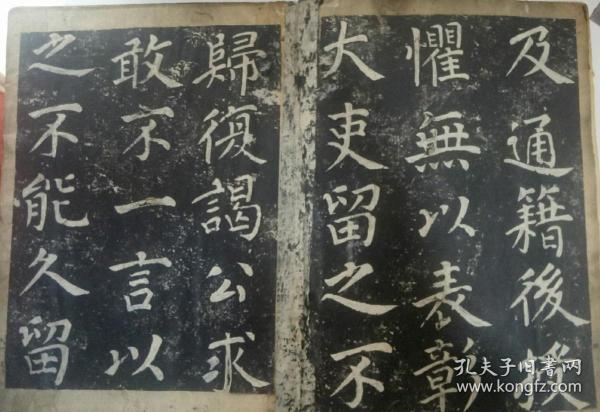 及通籍後
懼無以表彰
大吏留之不
歸復謁公求
敢不一言以
之不能久留
孔夫子旧书网
www.kongfz.com